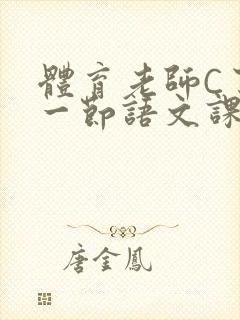 體育老師C
一節語文課
唐金鳳